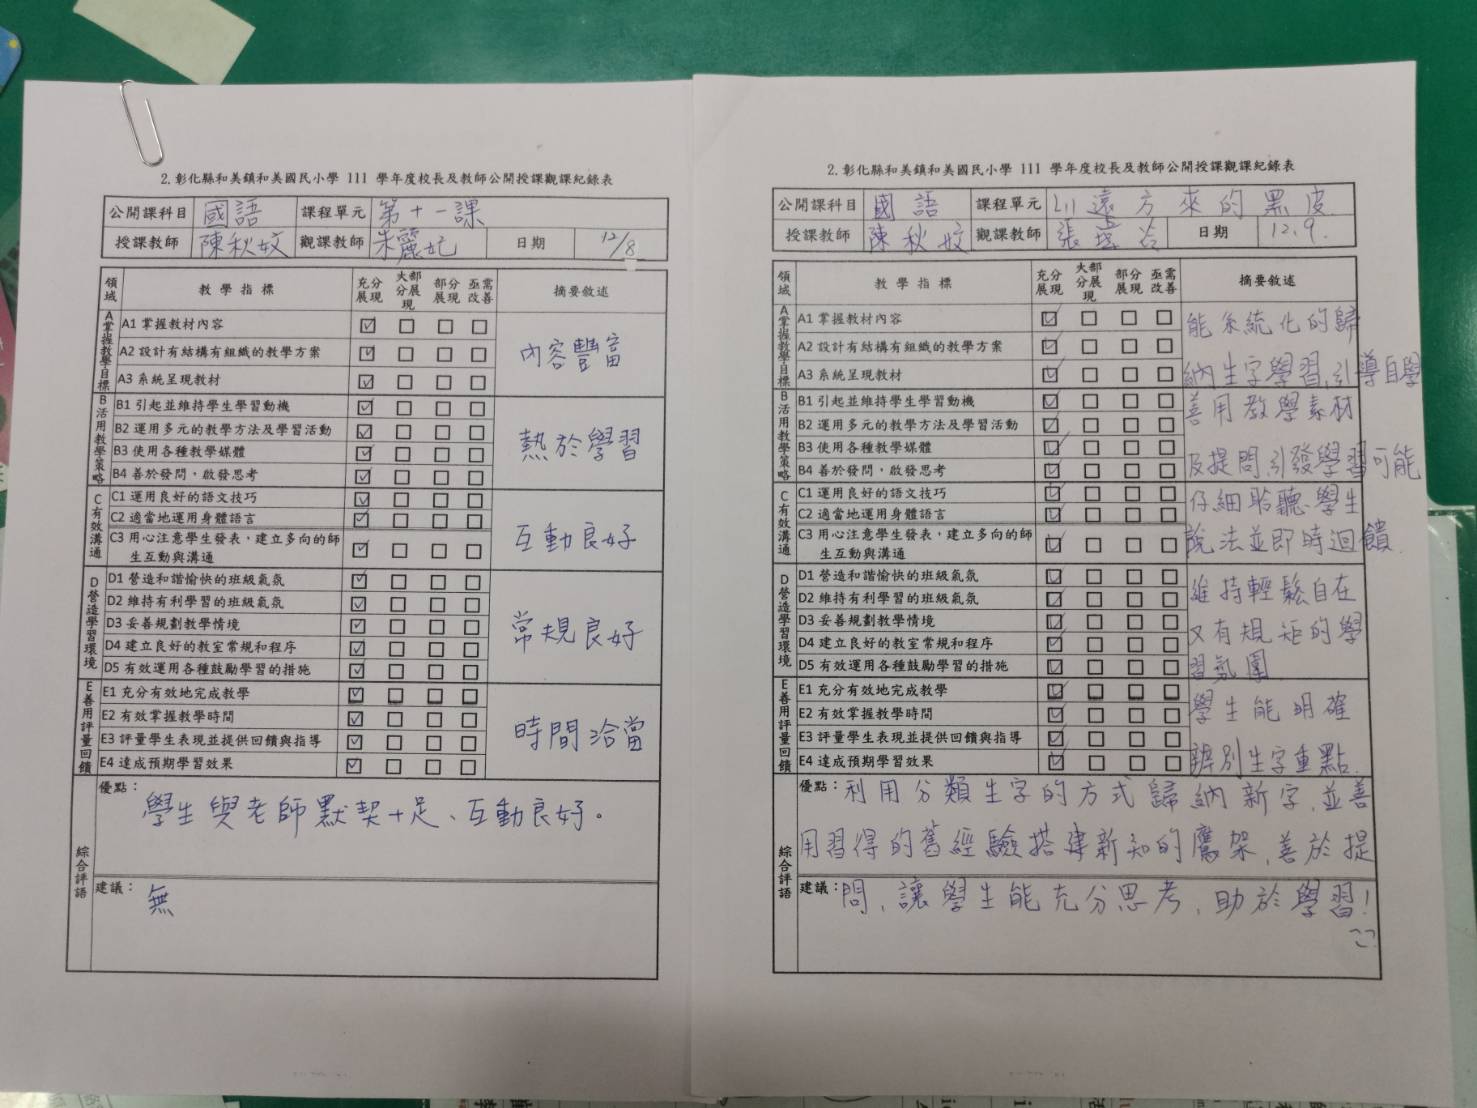 2.彰化縣和美鎮和美國民小學 111 學年度校長及教師公開授課觀課紀錄表
公開課科目 國語 課程單元 第十一課
授課教師 陳秋妏 觀課教師 朱麗妃 日期 12/8
領域 教 學 指 標 充分展現 大部分展現 部分展現 亟需改善 摘要敘述
A掌握教學目標
A1 掌握教材內容 ☑ □ □ □
A2 設計有結構有組織的教學方案 ☑ □ □ □
A3 系統呈現教材 ☑ □ □ □
內容豐富
B活用教學策略
B1 引起並維持學生學習動機 ☑ □ □ □
B2 運用多元的教學方法及學習活動 ☑ □ □ □
B3 使用各種教學媒體 ☑ □ □ □
B4 善於發問，啟發思考 ☑ □ □ □
熱於學習
C有效溝通
C1 運用良好的語文技巧 ☑ □ □ □
C2 適當地運用身體語言 ☑ □ □ □
C3 用心注意學生發表，建立多向的師
生互動與溝通 ☑ □ □ □
互動良好
D營造學習環境
D1 營造和諧愉快的班級氣氛 ☑ □ □ □
D2 維持有利學習的班級氣氛 ☑ □ □ □
D3 妥善規劃教學情境 ☑ □ □ □
D4 建立良好的教室常規和程序 ☑ □ □ □
D5 有效運用各種鼓勵學習的措施 ☑ □ □ □
常規良好
E善用評量回饋
E1 充分有效地完成教學 ☑ □ □ □
E2 有效掌握教學時間 ☑ □ □ □
E3 評量學生表現並提供回饋與指導 ☑ □ □ □
E4 達成預期學習效果 ☑ □ □ □
時間洽當
綜合評語
優點：
學生與老師默契十足、互動良好。
建議：無
2.彰化縣和美鎮和美國民小學 111 學年度校長及教師公開授課觀課紀錄表
公開課科目 國語 課程單元 L11 遠方來的黑皮
授課教師 陳秋妏 觀課教師 張 日期 12.9.
領域 教 學 指 標 充分展現 大部分展現 部分展現 亟需改善 摘要敘述
A掌握教學目標
A1 掌握教材內容 ☑ □ □ □
A2 設計有結構有組織的教學方案 ☑ □ □ □
A3 系統呈現教材 ☑ □ □ □
能系統化的歸
納生字學習,引導自學
B活用教學策略
B1 引起並維持學生學習動機 ☑ □ □ □
B2 運用多元的教學方法及學習活動 ☑ □ □ □
B3 使用各種教學媒體 ☑ □ □ □
B4 善於發問，啟發思考 ☑ □ □ □
善用教學素材
及提問,引發學習可能
C有效溝通
C1 運用良好的語文技巧 ☑ □ □ □
C2 適當地運用身體語言 ☑ □ □ □
C3 用心注意學生發表，建立多向的師
生互動與溝通 ☑ □ □ □
仔細聆聽學生
說法並即時迴饋.
D營造學習環境
D1 營造和諧愉快的班級氣氛 ☑ □ □ □
D2 維持有利學習的班級氣氛 ☑ □ □ □
D3 妥善規劃教學情境 ☑ □ □ □
D4 建立良好的教室常規和程序 ☑ □ □ □
D5 有效運用各種鼓勵學習的措施 ☑ □ □ □
維持輕鬆自在
又有規矩的學
習氛圍.
E善用評量回饋
E1 充分有效地完成教學 ☑ □ □ □
E2 有效掌握教學時間 ☑ □ □ □
E3 評量學生表現並提供回饋與指導 ☑ □ □ □
E4 達成預期學習效果 ☑ □ □ □
學生能明確
辨別生字重點.
綜合評語
優點：利用分類生字的方式歸納新字,並善
用習得的舊經驗搭建新知的鷹架,善於提
建議：問,讓學生能充分思考,助於學習!